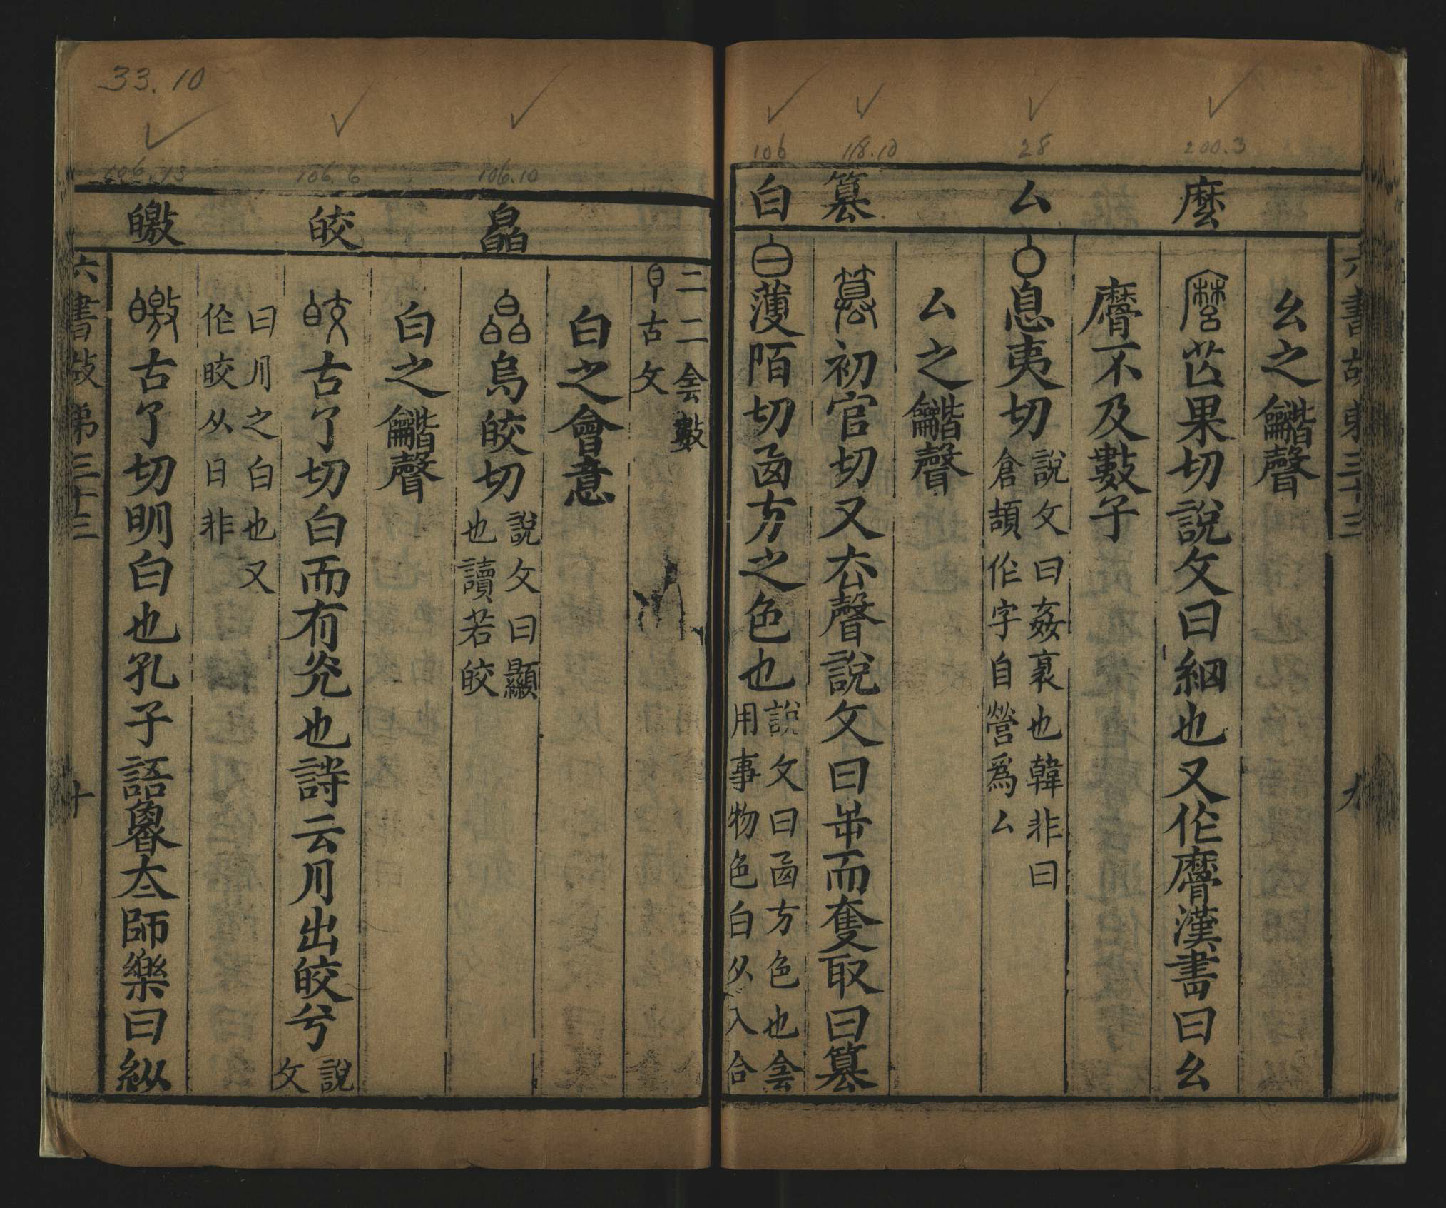 六書故弟三十三
九
幺之龤聲
麼
麼㒳果切說文曰細也又作𪎥漢書曰幺
𪎥不及數子
厶
厶息夷切說文曰姦衺也韓非曰
倉頡作字自營爲厶
厶之龤聲
篡
篡初官切又厺聲說文曰屰而奪取曰篡
白
白薄陌切㐭方之色也說文曰㐭方色也侌
用事物色白从入合
二二侌數
古文
白之會意
皛
皛烏皎切說文曰顯
也讀若皎
白之龤聲
皎
皎古了切白而有光也詩云月出皎兮說
文
曰月之白也又
作晈从日非
皦
皦古了切明白也孔子語魯太師樂曰縱
六書故弟三十三
十
33.10
106.13
106.6
106.10
106
118.10
28
200.3